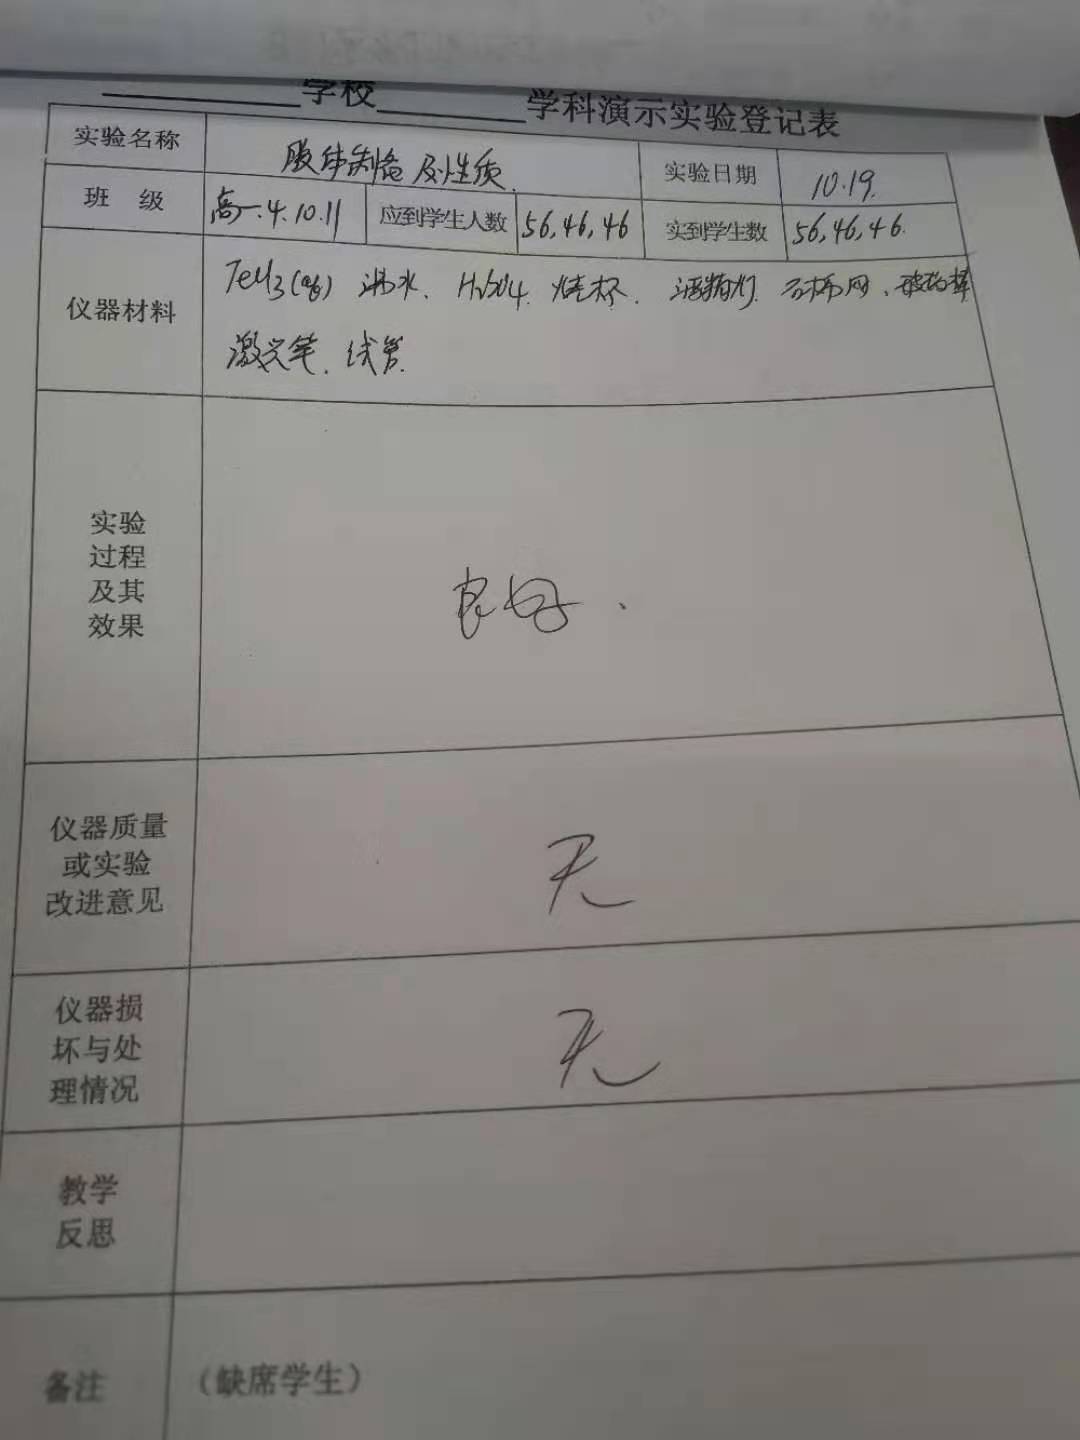 学校 学科演示实验登记表
实验名称 胶体制备及性质. 实验日期 10.19.
班 级 高一.4.10.11 应到学生人数 56,46,46 实到学生数 56,46,46.
仪器材料 FeCl3 沸水. H2SO4. 烧杯. 酒精灯. 石棉网、玻璃棒
激光笔. 试管.
实验
过程
及其
效果
良好.
仪器质量
或实验
改进意见
无
仪器损
坏与处
理情况
无
教学
反思
备注 (缺席学生)